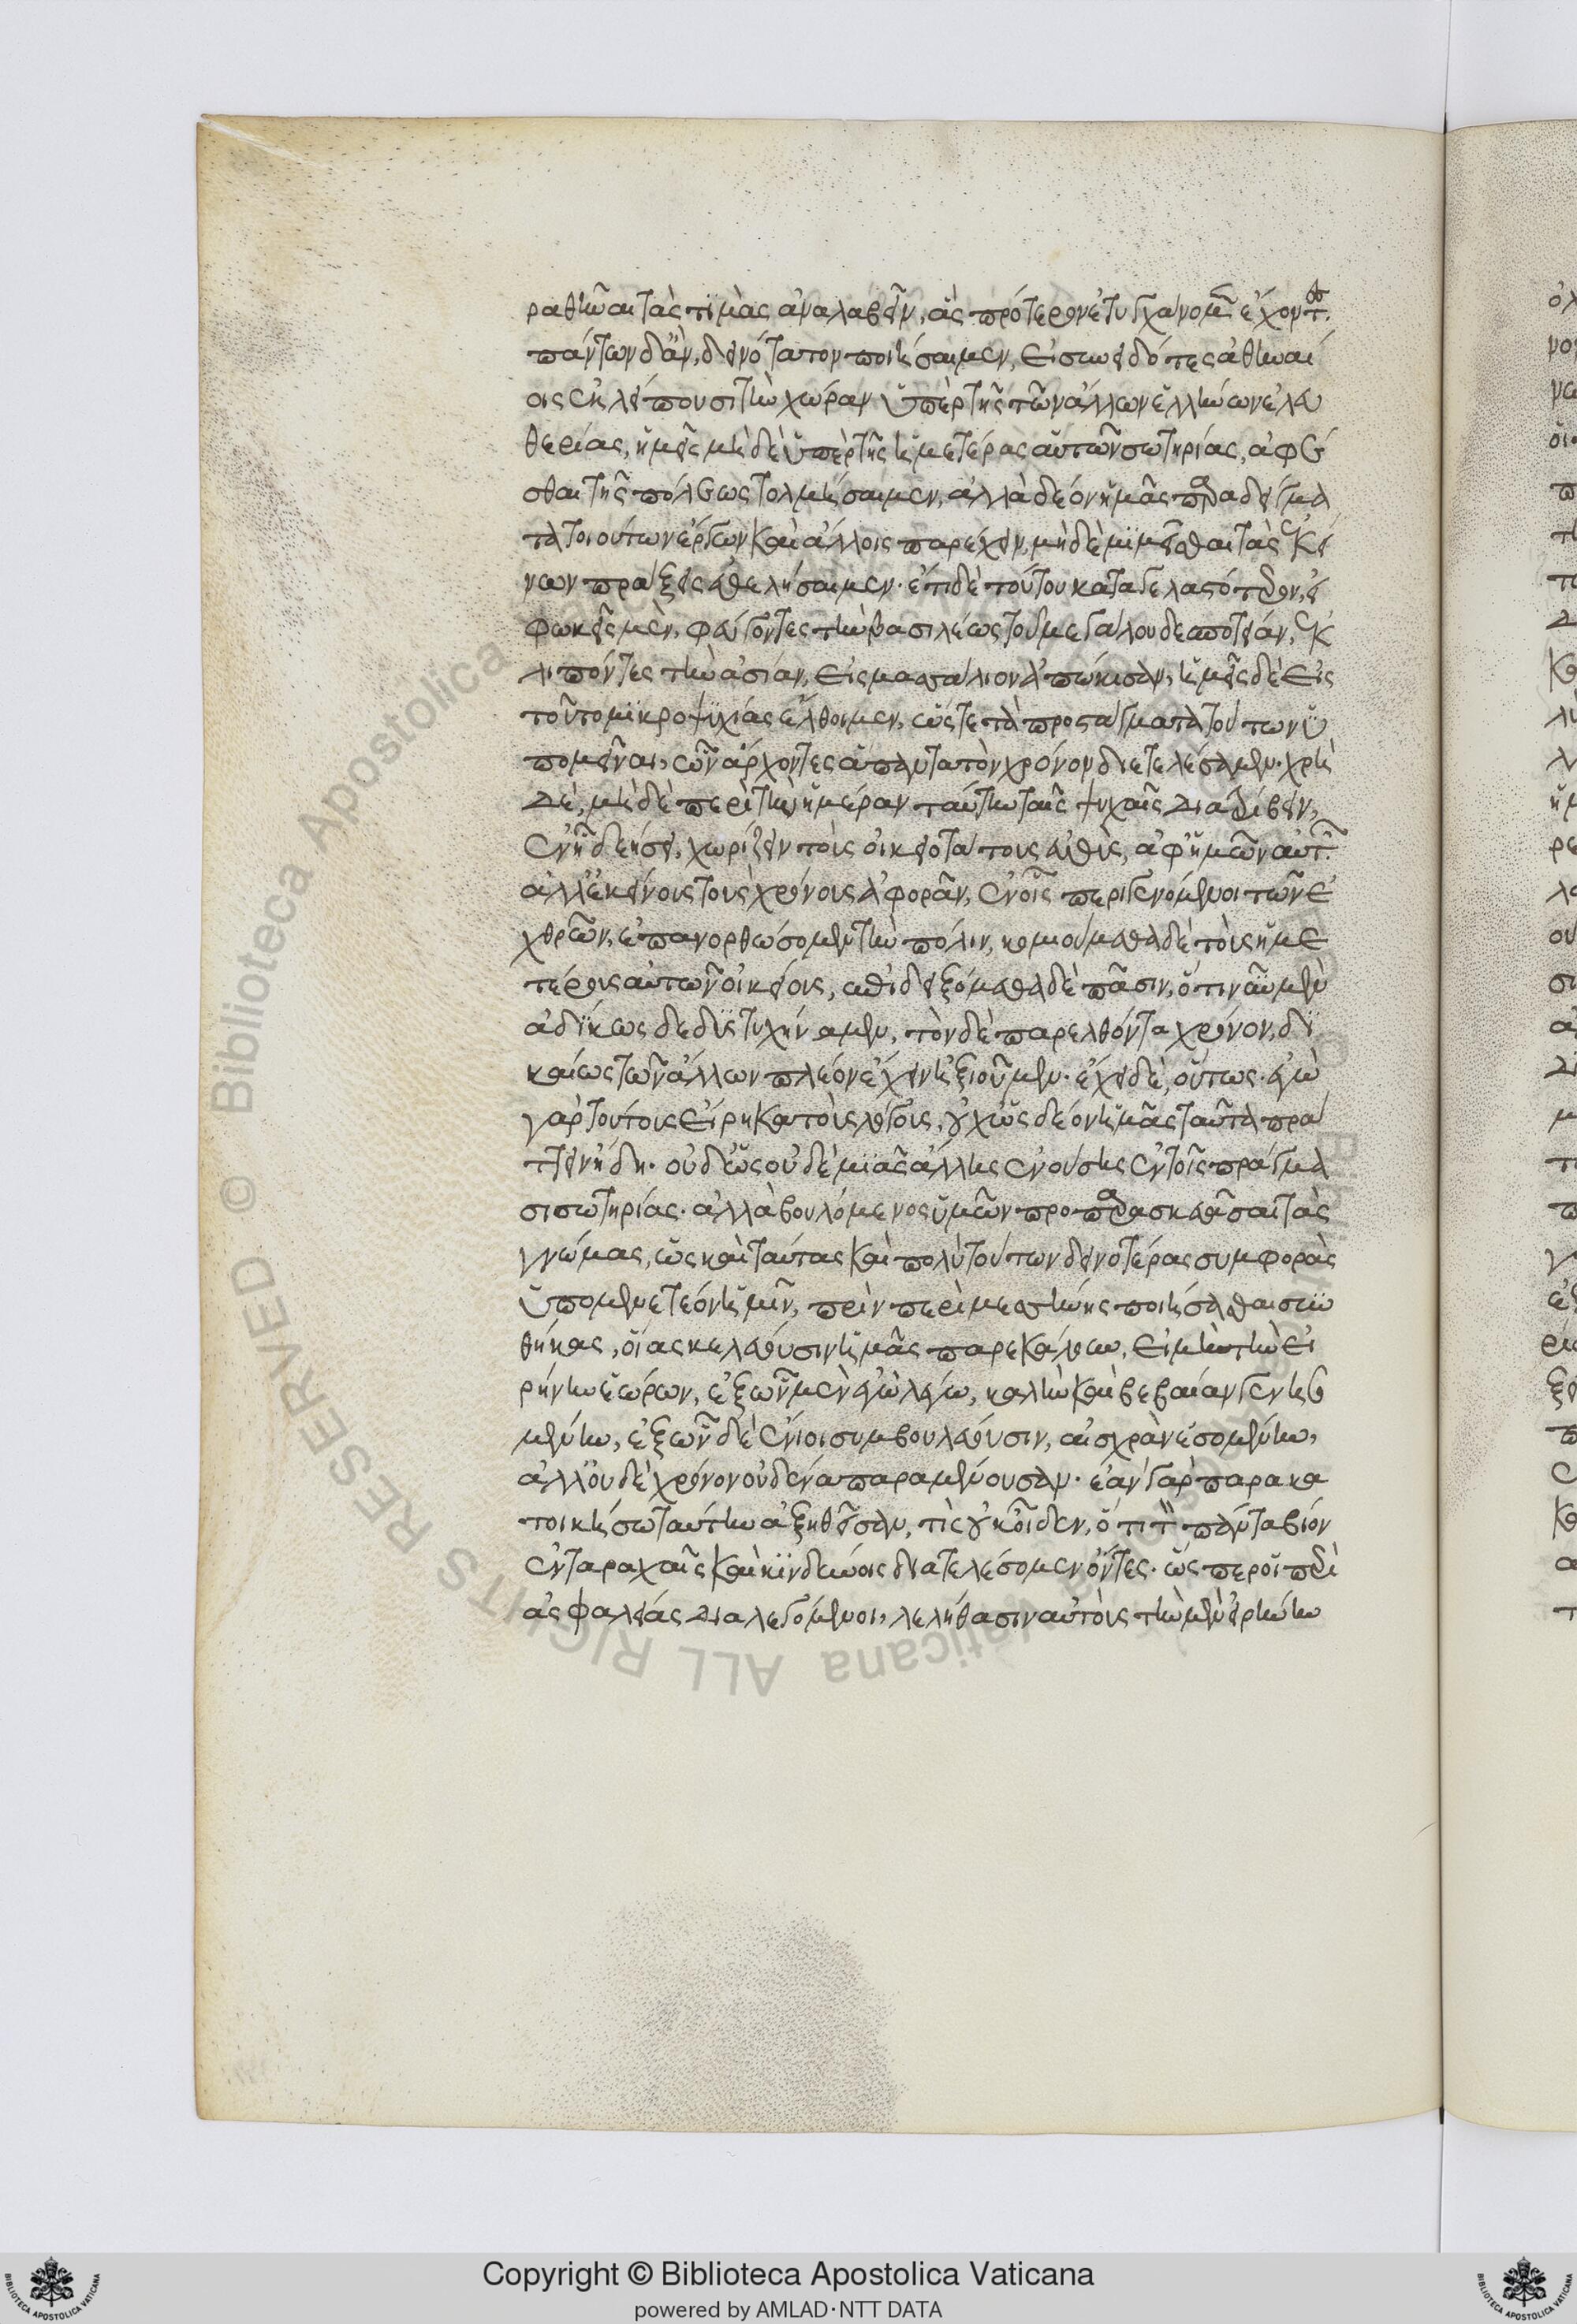 ραθῆναι τὰς τιμὰς ἀναλαβεῖν, ἃς πρότερον ἐτυγχάνομεν ἔχοντες.
πάντων δ' ἂν, δεινότατον ποιήσαιμεν, εἰ συνειδότες ἀθηναί
οις ἐκλείπουσι τὴν χώραν ὑπὲρ τῆς τῶν ἄλλων ἑλλήνων ἐλευ
θερίας, ἡμεῖς μὴ δὲ ὑπὲρ τῆς ἡμετέρας αὐτῶν σωτηρίας, ἀφέ
σθαι τῆς πόλεως τολμήσαιμεν, ἀλλὰ δέον ἡμᾶς παραδείγμα
τα τοιούτων ἔργων καὶ ἄλλοις παρέχειν, μὴ δὲ μιμεῖσθαι τὰς ἐκεί
νων πράξεις ἐθελήσαιμεν· ἔτι δὲ τούτου καταγελαστότερον, εἰ
φωκεῖς μὲν, φεύγοντες τὴν βασιλέως τοῦ μεγάλου δεσποτείαν, ἐκ
λιπόντες τὴν ἀσίαν, εἰς μασσάλιον ἀπῴκησαν, ἡμεῖς δὲ εἰς
τοῦτο μικροψυχίας ἔλθοιμεν, ὥστε τὰ προστάγματα τούτων ὑ
πομεῖναι, ὧν ἄρχοντες ἅπαντα τὸν χρόνον διετελέσαμεν. χρὴ
δὲ, μὴ δὲ περὶ τὴν ἡμέραν ταύτην ταῖς ψυχαῖς διατρίβειν,
ἐν ᾗ δεήσει, χωρίζειν τοὺς οἰκειοτάτους εὐθὺς, ἀφ' ἡμῶν αὐτῶν.
ἀλλ' ἐκείνους τοὺς χρόνους ἀφορᾶν, ἐν οἷς περιγενόμενοι τῶν ἐ
χθρῶν, ἐπανορθώσομεν τὴν πόλιν, κομιούμεθα δὲ τοὺς ἡμε
τέρους αὐτῶν οἰκείους, ἐπιδειξόμεθα δὲ πᾶσιν, ὅτι νῦν μὲν
ἀδίκως δεδυστυχήκαμεν, τὸν δὲ παρελθόντα χρόνον, δι
καίως τῶν ἄλλων πλέον ἔχειν ἠξιοῦμεν. ἔχει δὲ, οὕτως. ἐγὼ
γὰρ τούτους εἴρηκα τοὺς λόγους, οὐχ ὡς δέον ἡμᾶς ταῦτα πράτ
τειν ἤδη. οὐδ' ὡς οὐδὲ μιᾶς ἄλλης ἐνούσης ἐν τοῖς πράγμα
σι σωτηρίας. ἀλλὰ βουλόμενος ὑμῶν προπαρασκευᾶσαι τὰς
γνώμας, ὡς καὶ ταύτας καὶ πολὺ τούτων δεινοτέρας συμφορὰς
ὑπομενετέον ἡμῖν, πρὶν περὶ μεσσήνης ποιήσασθαι συν
θήκας, οἵας κελεύουσιν ἡμᾶς παρεκάλουν, εἰ μὴ τὴν εἰ
ρήνην ἑώρων, ἐξ ὧν μὲν ἐγὼ λέγω, καλὴν καὶ βεβαίαν γενησο
μένην, ἐξ ὧν δὲ ἔνιοι συμβουλεύουσιν, αἰσχρὰν ἐσομένην,
ἀλλ' οὐδὲ χρόνον οὐδένα παραμένουσαν. ἐὰν γὰρ παρακα
τοικησώμεθα τοὺς εἵλωτας,
ἐν ταραχαῖς καὶ κινδύνοις διατελέσομεν ὄντες. ὥσπερ οἱ περὶ
ἀσφαλείας διαλεγόμενοι, λελήθασιν αὐτοὺς τὴν μὲν εἰρήνην